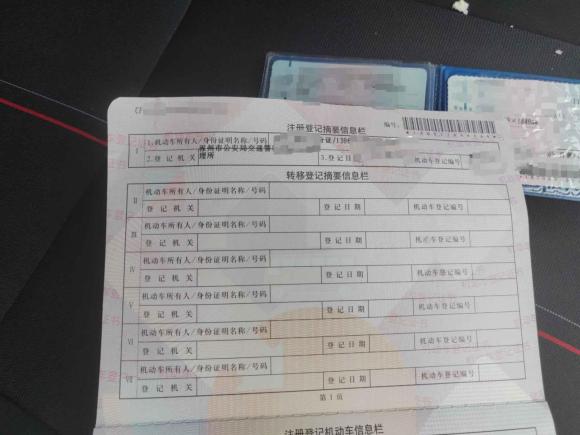 注册登记摘要信息栏
编号:
I 1.机动车所有人/身份证明名称/号码
2.登记机关 市公安局交通警 理所 3.登记日 机动车登记编号
转移登记摘要信息栏
II 机动车所有人/身份证明名称/号码
登记机关 登记日期 机动车登记编号
III 机动车所有人/身份证明名称/号码
登记机关 登记日期 机动车登记编号
IV 机动车所有人/身份证明名称/号码
登记机关 登记日期 机动车登记编号
V 机动车所有人/身份证明名称/号码
登记机关 登记日期 机动车登记编号
VI 机动车所有人/身份证明名称/号码
登记机关 登记日期 机动车登记编号
VII 机动车所有人/身份证明名称/号码
登记机关 登记日期 机动车登记编号
第1页
注册登记机动车信息栏